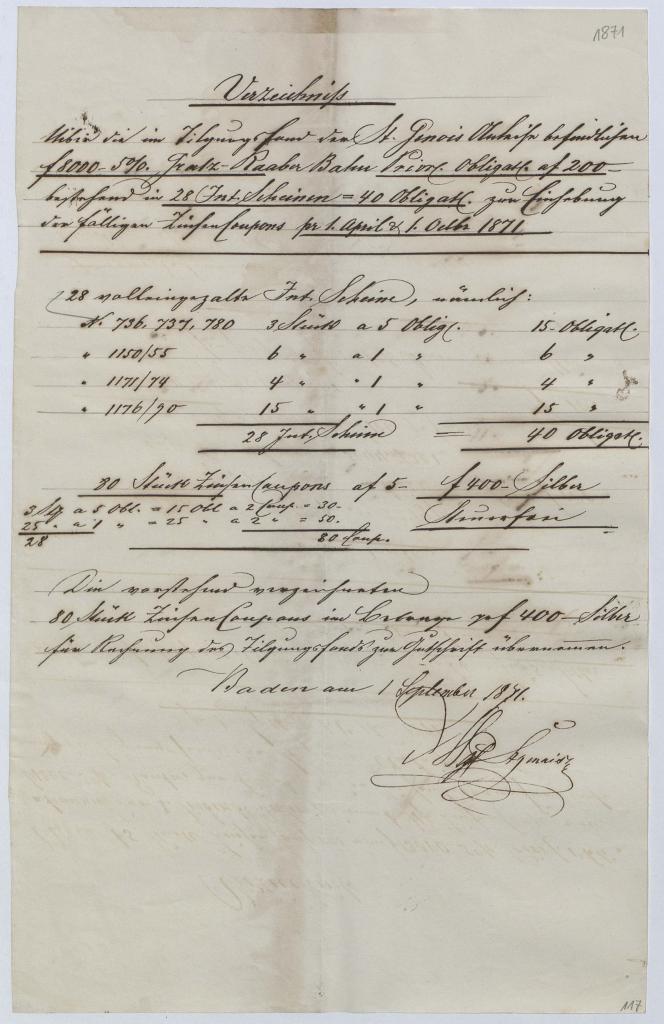 1871
Verzeichniß
Über die im Tilgungsfond der St. Genois Anleihe befindlichen
f 8000 – 5%. Gratz-Raaber Bahn Prior. Obligat. af 200 –
bestehend in 28 Int. Scheinen = 40 Obligat. zur Einhebung
der fälligen Zinsen Coupons pr 1. April & 1. Octbr 1871
28 volleingezalte Int. Scheine, nämlich:
N. 736, 737, 780 3 Stück a 5 Oblig. 15 Obligat.
" 1150/55 6 " a 1 " 6 "
" 1171/74 4 " " 1 " 4 "
" 1176/90 15 " " 1 " 15 "
28 Int. Scheine = 40 Obligat.
80 Stück Zinsen Coupons af 5 – f 400 – Silber
3 Stk a 5 Obl. = 15 Obl a 2 Coup. = 30 –
Steuerfrei
25 " a 1 " = 25 " a 2 " = 50.
28 80 Coup.
Die vorstehend verzeichneten
80 Stück Zinsen Coupons im Betrage pr f 400 – Silber
für Rechnung des Tilgungsfonds zur Gutschrift übernommen.
Baden am 1 September 1871.
117